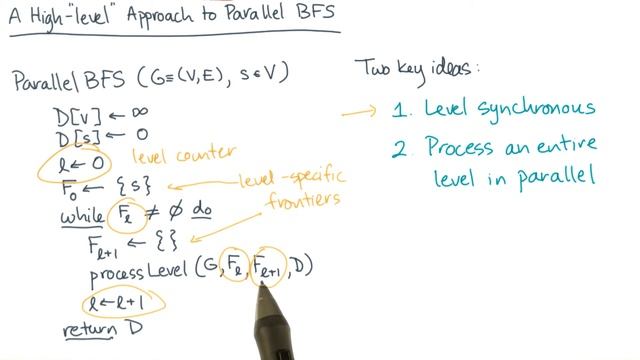 A High-"level" Approach to Parallel BFS
Parallel BFS (G≡(V,E), s∈V)
D[v] ← ∞
D[s] ← 0
l ← 0 level counter
F₀ ← {s} level-specific frontiers
while Fₗ ≠ ∅ do
Fₗ₊₁ ← {}
processLevel (G, Fₗ, Fₗ₊₁, D)
l ← l+1
return D
Two key ideas:
→ 1. Level synchronous
2. Process an entire
level in parallel